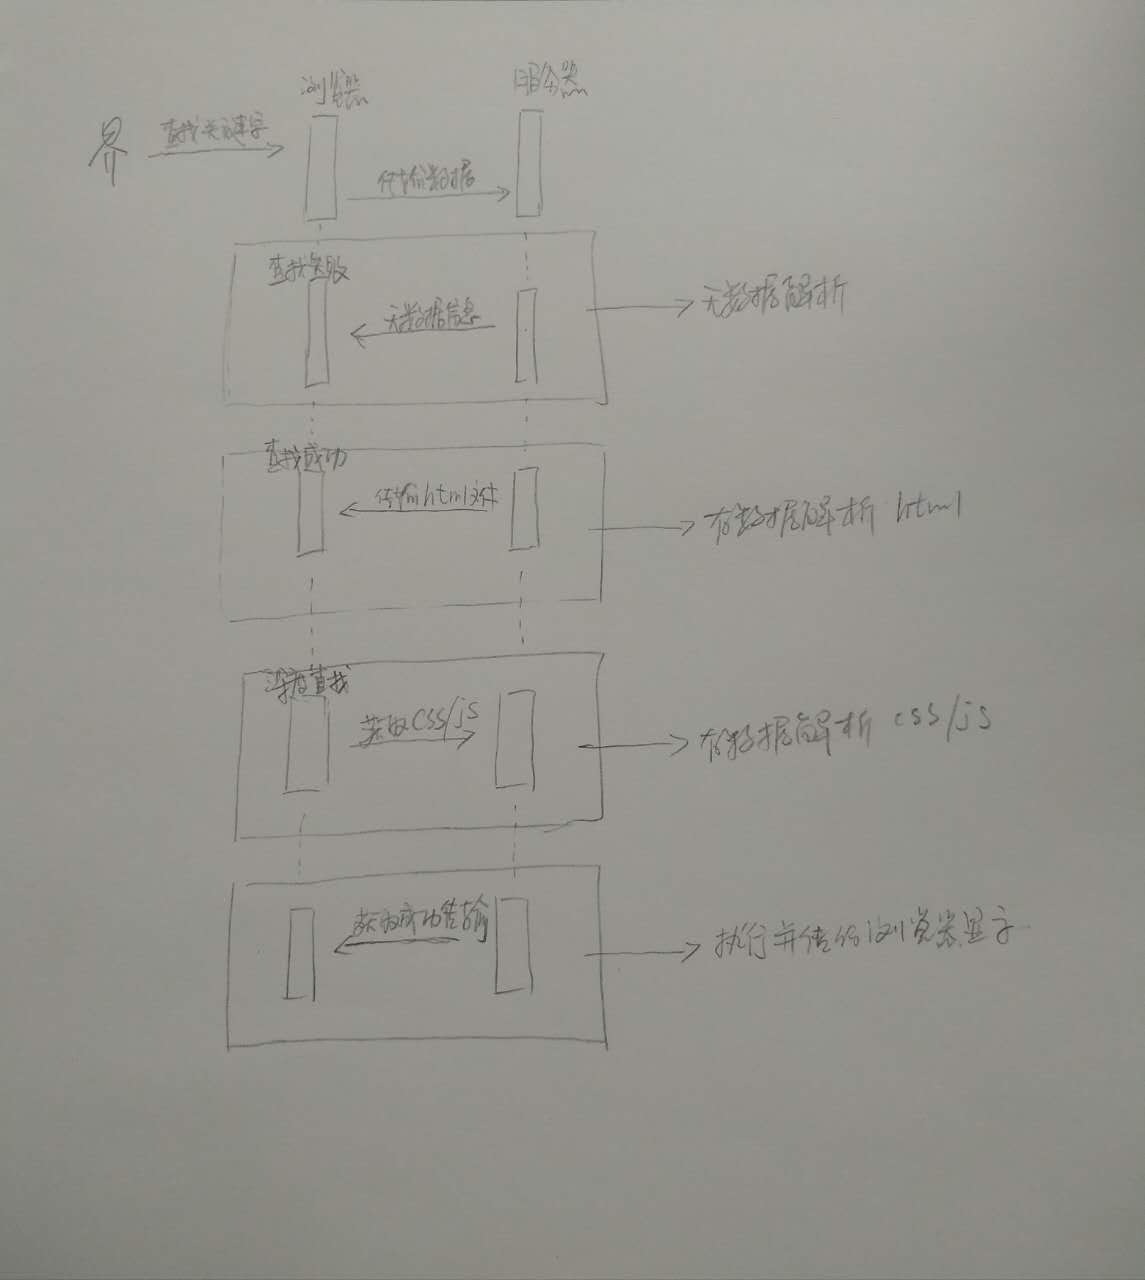 浏览器
服务器
查找关键字
传输数据
查找失败
无数据信息
无数据解析
查找成功
传输html文件
有数据解析 html
深度查找
获取CSS/js
有数据解析 css/js
获取成功传输
执行并传给浏览器显示